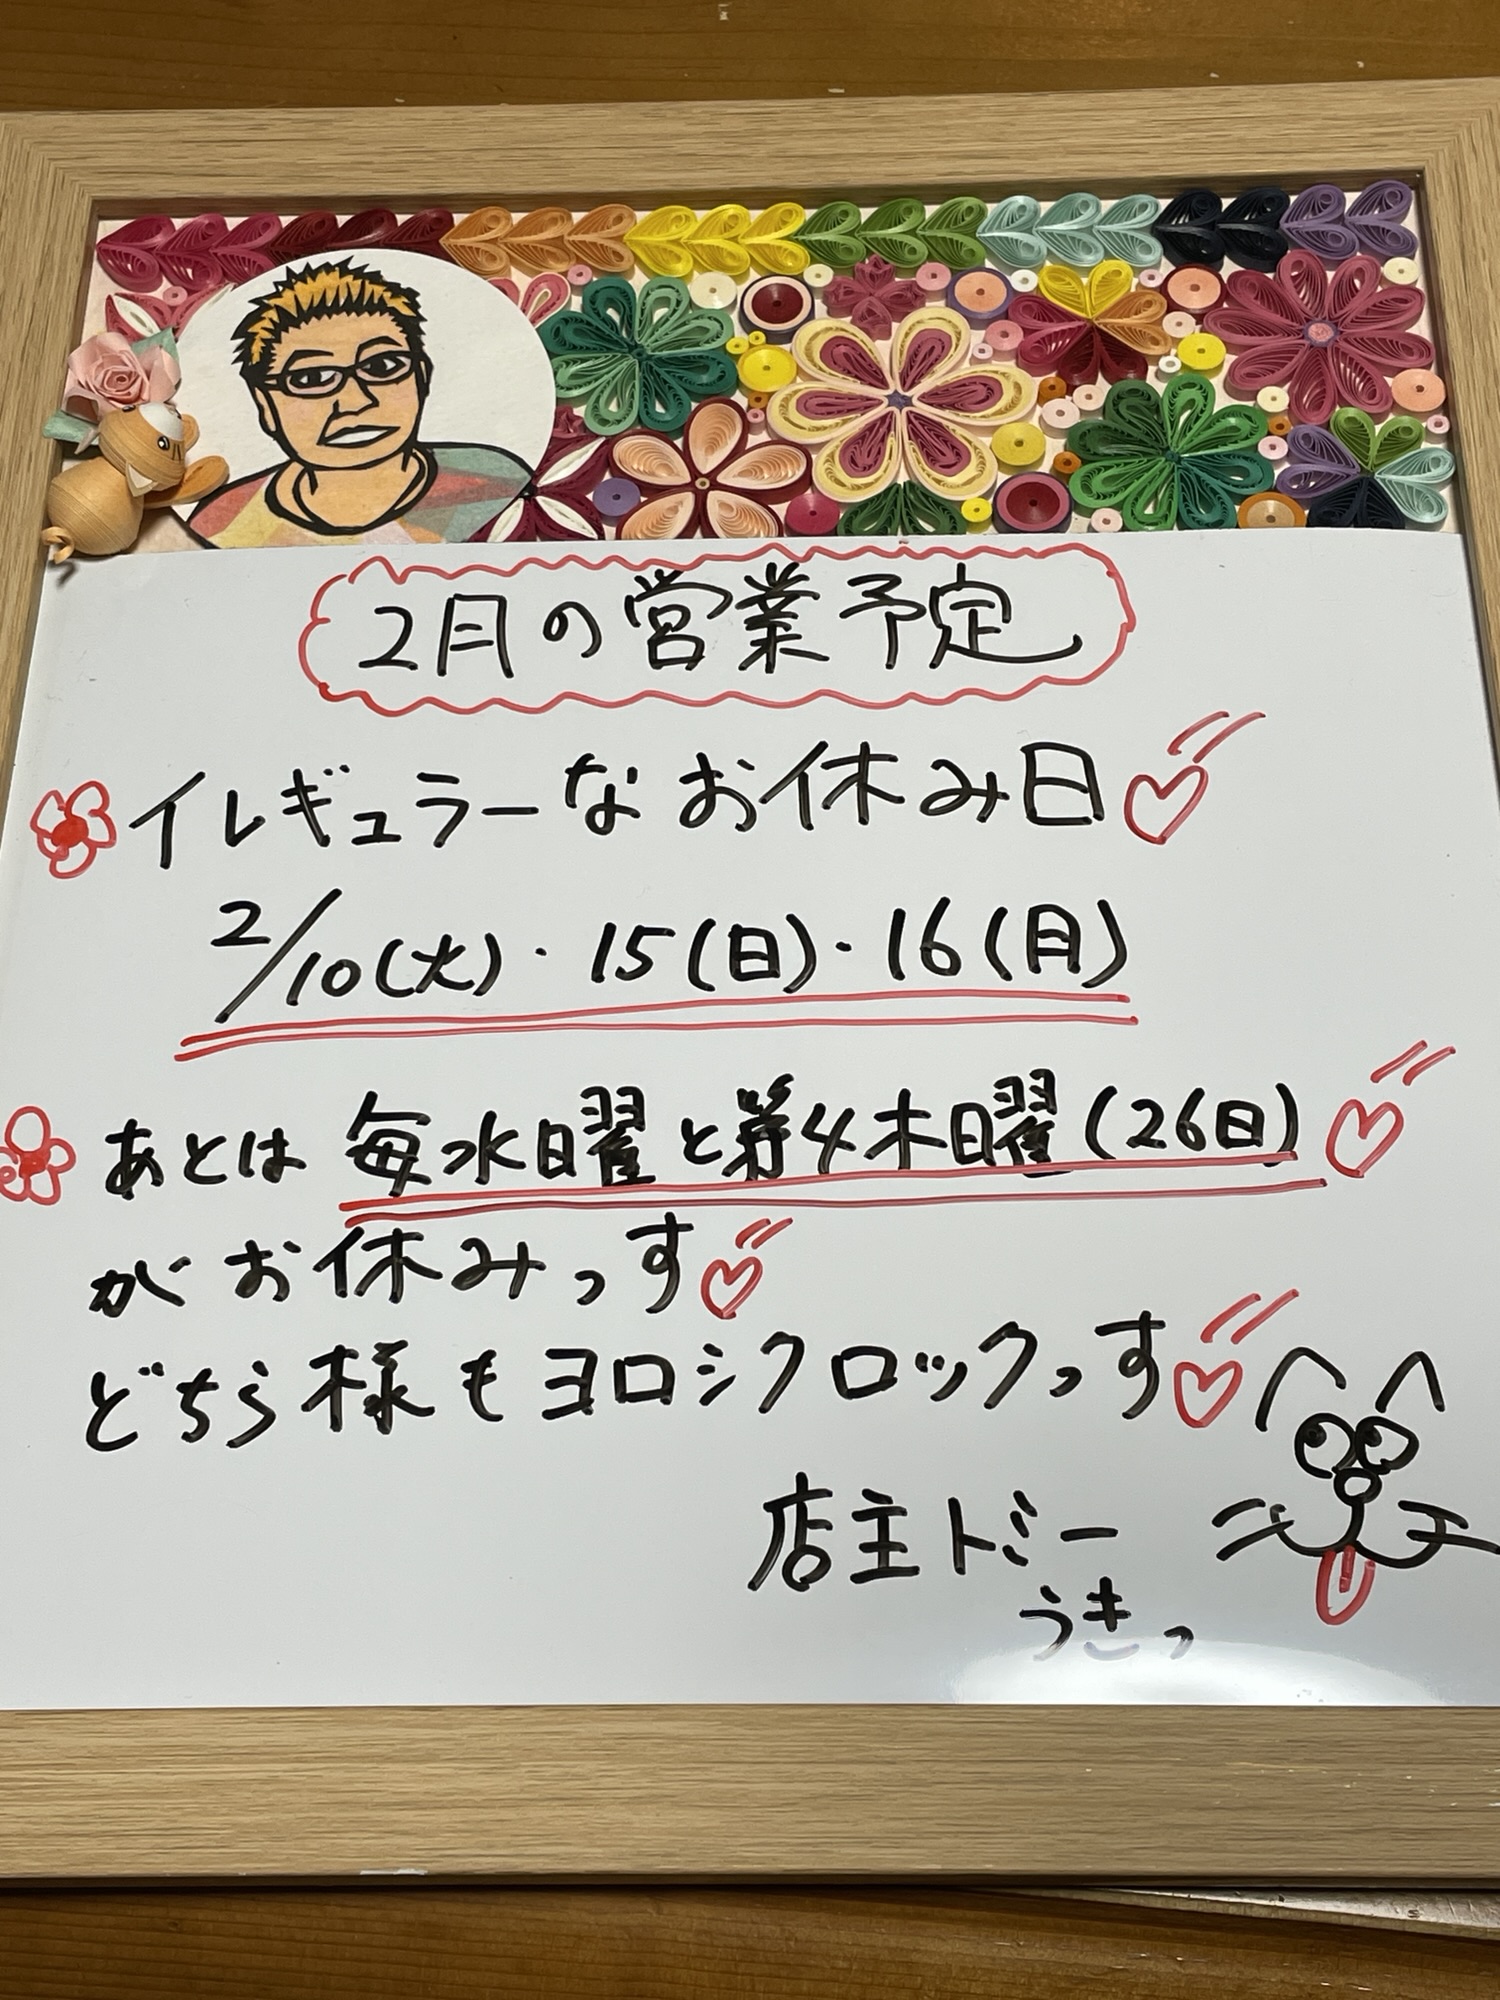 2月の営業予定
イレギュラーなお休み日
2/10(火)・15(日)・16(月)
あとは 毎水曜日と第4木曜日(26日)
がお休みっす
どちら様もヨロシクロックっす
店主トミー
うきっ